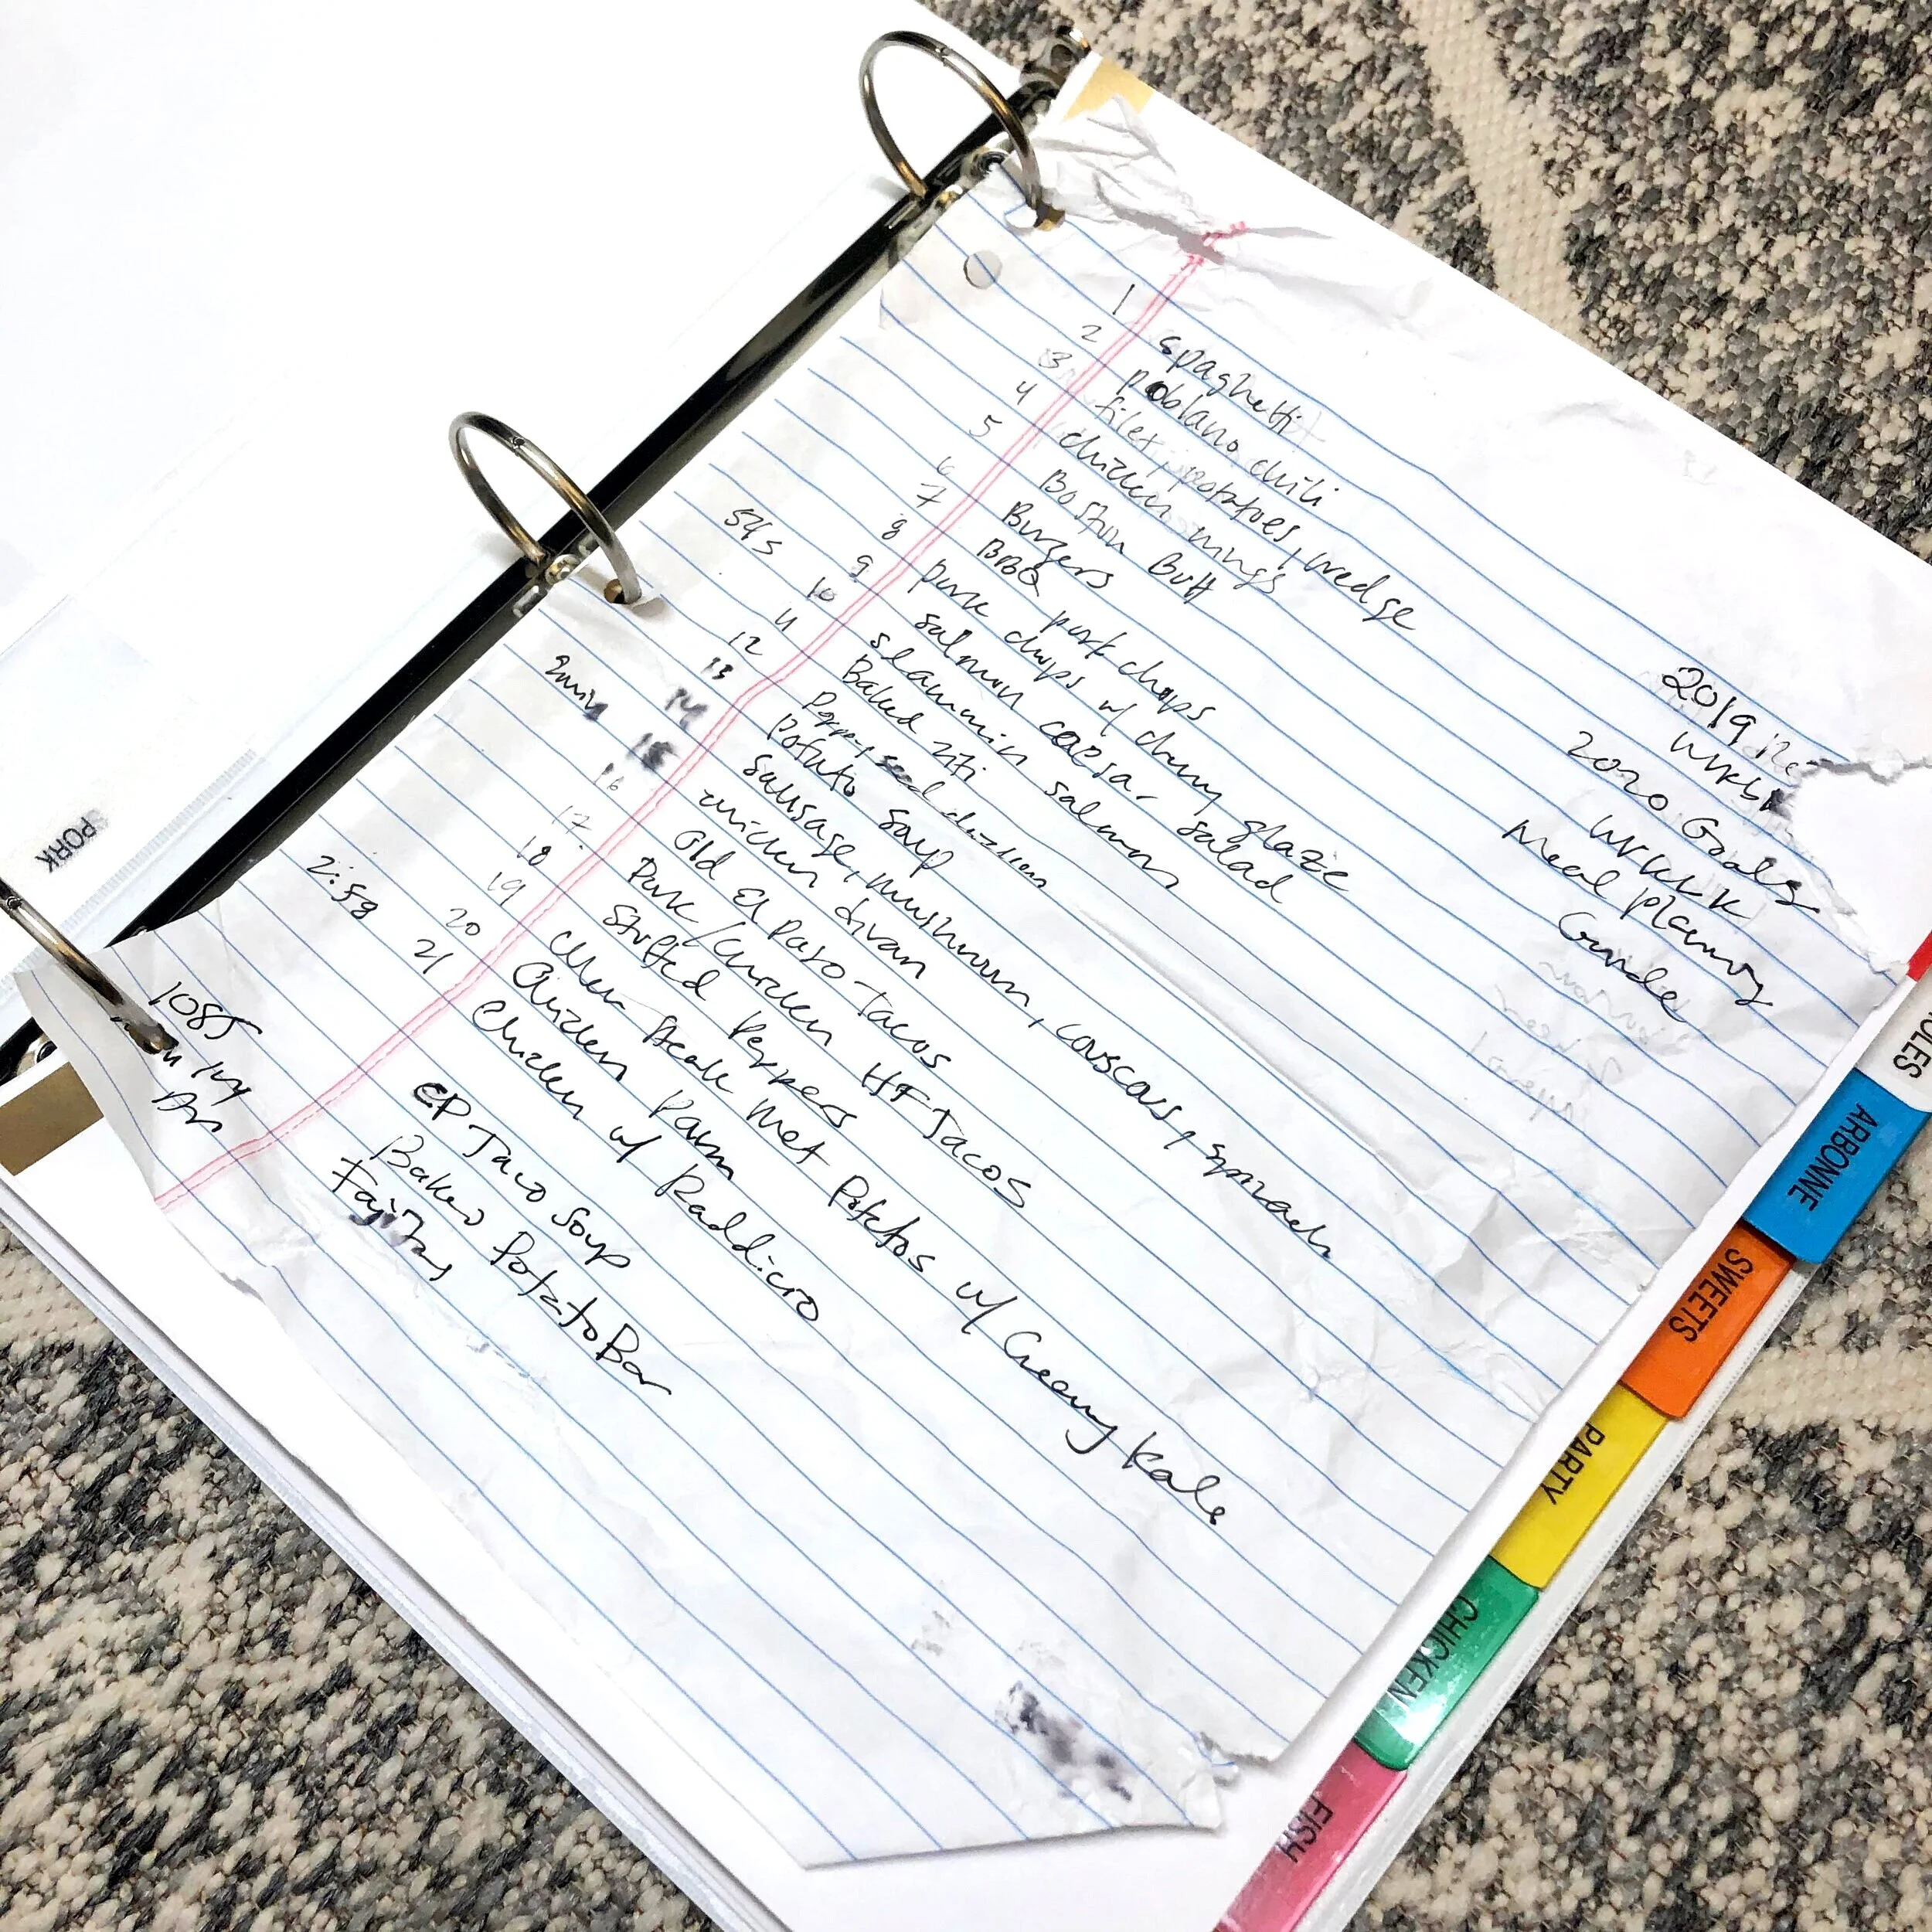 1 spaghetti
2 poblano chili
3 filet, potatoes, wedge
4 chicken wings
5 Boston Butt
6 Burgers
7 BBQ pork chops
8 pork chops w/ cherry glaze
545 9 salmon caesar salad
10 slammin salmon
11 Baked ziti
12 poppyseed chicken
13 potato soup
14 sausage, mushroom, couscous, spinach
15 chicken divan
16 Old El Paso Tacos
17 Pork/Chicken HF Tacos
18 Stuffed Peppers
19 Steak Met Potatos w/ Creamy Kale
2:58 20 Chicken Parm
21 Chicken w/ Raddicro
1085
CP Taco Soup
Baked Potato Bar
Fajitas
2019
2020 Goals
Meal planning
Guide
PORK
ARBONNE
SWEETS
PARTY
CHICKEN
FISH